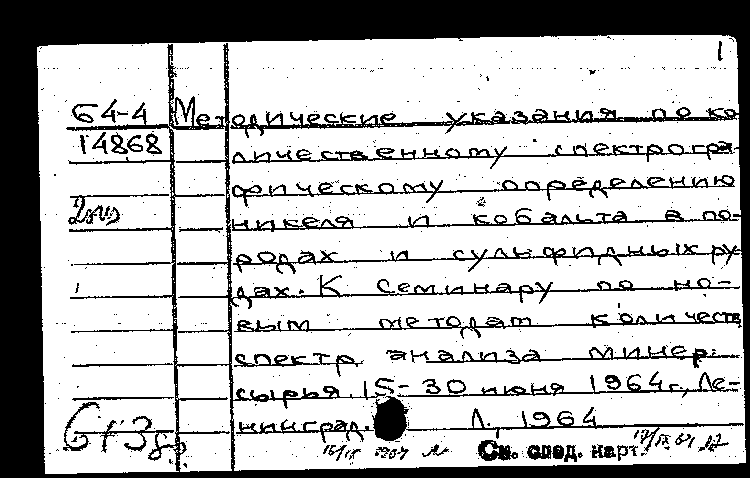 1
64-4 Методические указания по ко
14868 личественному спектрогра-
фическому определению
никеля и кобальта в по-
родах и сульфидных ру-
дах. К семинару по но-
вым методам количеств
спектр. анализа минер.
сырья. 15-30 июня 1964г., Ле-
нинград. Л., 1964
См. след. карт.